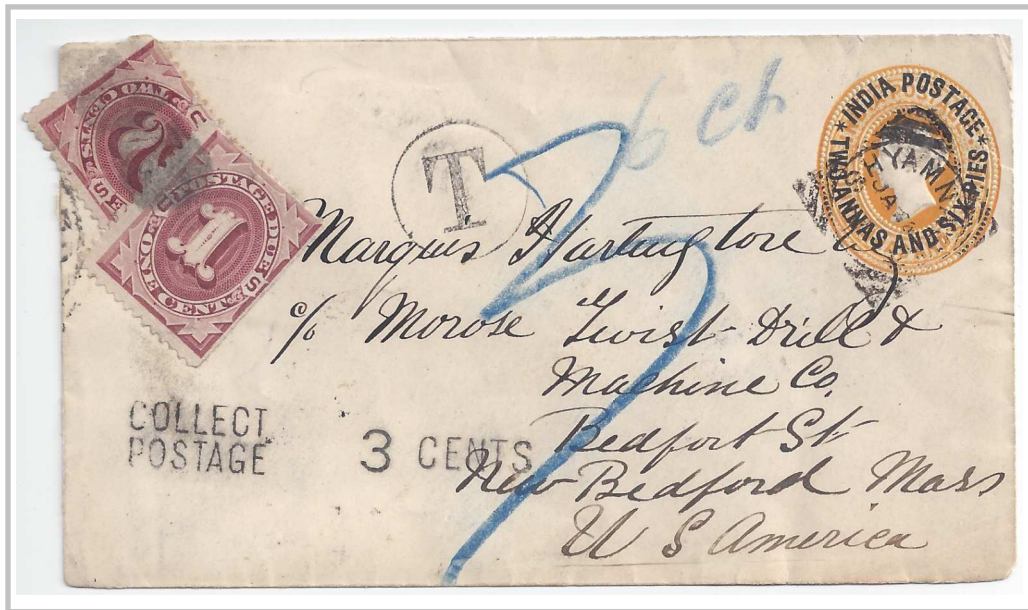 TWO CENTS
POSTAGE DUE
1
ONE CENT
2
T
6 ct
INDIA POSTAGE
TWO ANNAS AND SIX PIES
YAM
JA
Marquis Hartingtore
c/o Morose Twist Drill &
Machine Co.
Bedfort St
New Bedford Mass
U S America
COLLECT
POSTAGE
3 CENTS
3